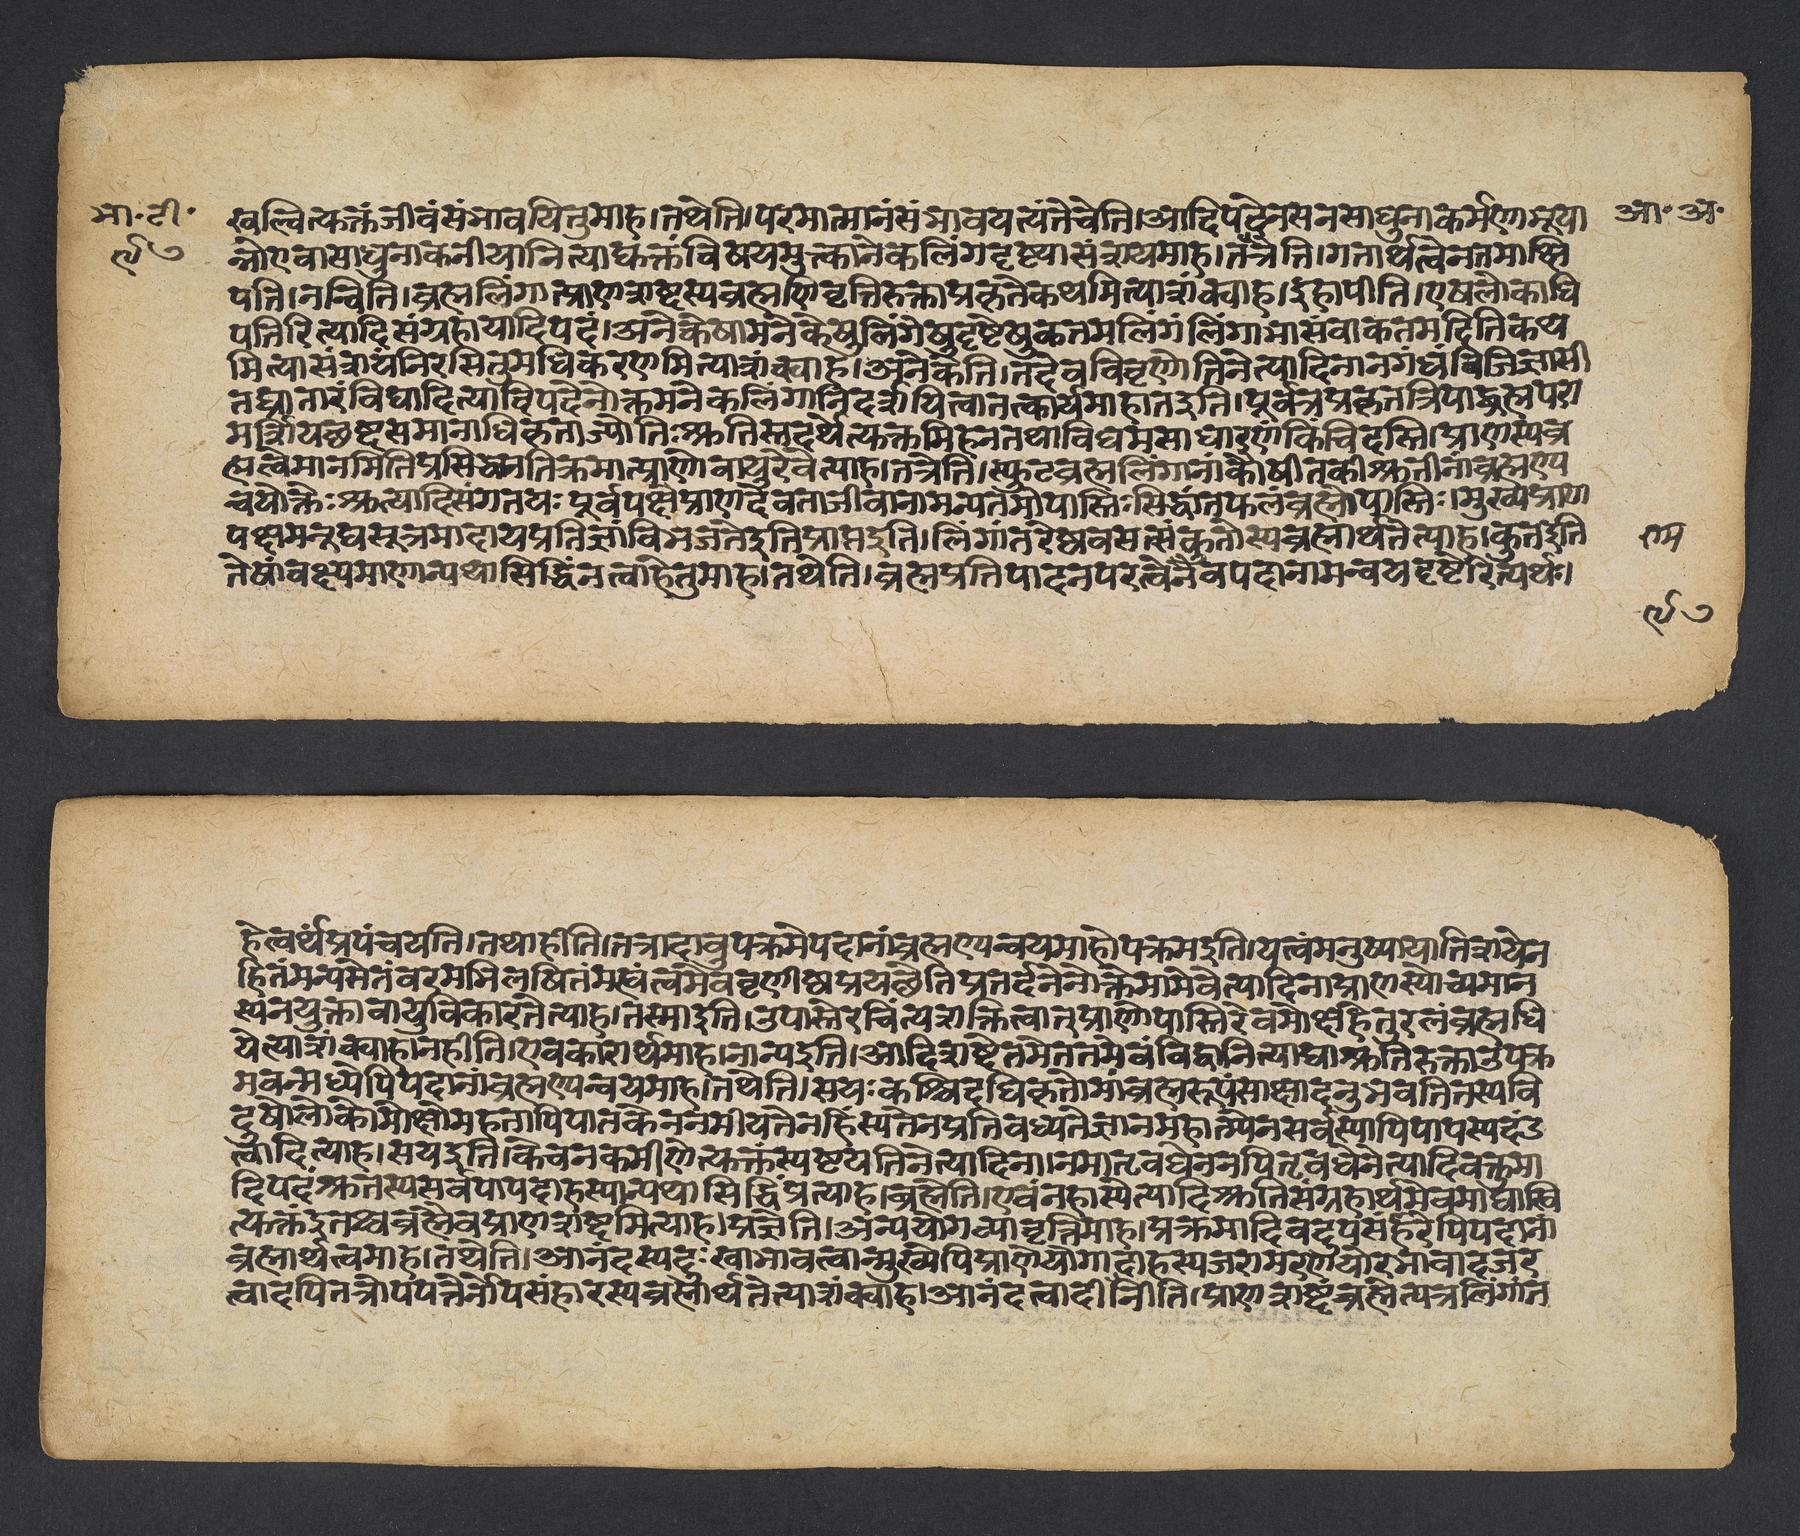 भा॰ टी॰
९७
खल्वित्युक्तं जीवं संभावयितुमाह । तथेति । परमात्मानं संभावयत्यंते चेति । आदिपदेन स न साधुना कर्मणा भूया
आ॰ अ॰
न्नो एवासाधुना कनीयानित्याद्युक्तं विषयमुक्त्वानेकलिंगदृष्ट्या संशयमाह । तत्रेति । गतार्थत्वेन तमाक्षि
पति । नन्विति । ब्रह्मलिंगात्प्राणशब्दस्य ब्रह्मणि वृत्तिरुक्ता प्रकृते कथमित्याशंक्याह । इहापीति । एष लोकाधि
पतिरित्यादिसंग्रहायादिपदं । अनेकेषामनेकेषु लिंगेषु दृष्टेषु कतमलिंगं लिंगाभासं वा कतमदिति कथ
मित्यासंशयं निरसितुमधिकरणमित्याशंक्याह । अनेकेति । तदेव विवृणोति नेत्यादिना न गंधं विजिज्ञासी
त घ्रातारं विद्यादित्यादिपदेनोक्तमनेकलिंगानि दर्शयित्वा तत्कार्यमाह । त इति । पूर्वत्र प्रकृतत्रिपाद्ब्रह्मपरा
मर्शियच्छब्दसमानाधिकृता ज्योतिःश्रुतिस्तदर्थेत्युक्तमिह न तथाविधमसाधारणं किंचिदस्ति । प्राणस्य ब्र
ह्मत्वे मानमिति प्रसिद्ध्यनतिक्रमात्प्राणो वायुरेवेत्याह । तत्रेति । स्फुटब्रह्मलिंगानां कौषीतकीश्रुतीनां ब्रह्मण्य
न्वयोक्तेः श्रुत्यादिसंगतयः पूर्वपक्षे प्राणदेवताजीवानामन्यतमोपास्तिः सिद्धांते फलं ब्रह्मोपास्तिः । मुख्यप्राण
पक्षमनूद्य सूत्रमादाय प्रतिज्ञां विभजते इति प्राप्त इति । लिंगांतरेष्ववसत्सं कुतोस्य ब्रह्मार्थतेत्याह । कुत इति
राम
तेषां वक्ष्यमाणान्यथासिद्धिं नत्वा हेतुमाह । तथेति । ब्रह्मप्रतिपादनपरत्वेनैव पदानामन्वयदृष्टेरित्यर्थः ।
९७
हेत्वर्थं प्रपंचयति । तथाहीति । तत्रादावुपक्रमे पदानां ब्रह्मण्यन्वयमाहोपक्रम इति । यत्त्वं मनुष्यायातिशयेन
हितं मन्यसे तं वरमभिलषितं मह्यं त्वमेव वृणीष्व प्रयच्छेति प्रतर्दनेनोक्ते मामेवेत्यादिना प्राणस्योच्यमान
स्य न युक्ता वायुविकारतेत्याह । तस्मा इति । उपास्तेरचिंत्यशक्तित्वात् प्राणोपास्तिरेव मोक्षहेतुरलं ब्रह्मधि
येत्याशंक्याह । नहीति । एवकारार्थमाह । नान्य इति । आदिशब्देन तमेतमेवं विद्वानित्याद्या श्रुतिरुक्ता उपक्र
मवन्मध्येपि पदानां ब्रह्मण्यन्वयमाह । तथेति । स यः कश्चिदधिकृतो मां ब्रह्मरूपं साक्षादनुभवति तस्य वि
दुषो लोको मोक्षो महतापि पातकेन न मीयते न हिंस्यते न प्रतिबध्यते ज्ञानमहात्म्येन सर्वस्यापि पापस्य दग्ध
त्वादित्याह । स य इति । केचन कर्मणेत्युक्तं स्पष्टयति नेत्यादिना । न मातृवधेन न पितृवधेनेत्यादि वक्तुमा
दिपदं श्रुतस्य सर्वपापदाहस्यान्यथासिद्धिं प्रत्याह । ब्रह्मेति । एवं न हास्येत्यादिश्रुतिसंग्रहार्थमेवमाद्यास्वि
त्युक्तं इतश्च ब्रह्मैव प्राणशब्दमित्याह । प्रज्ञेति । अन्ययोगव्यावृत्तिमाह । प्रक्रमादिवदुपसंहारेपि पदानां
ब्रह्मार्थत्वमाह । तथेति । आनंदस्य दुःखाभावत्वान्मुख्येपि प्राणे योगादाहस्य जरामरणयोरभावादजर
त्वादपि तत्रोपपत्तेर्नोपसंहारस्य ब्रह्मार्थतेत्याशंक्याह । आनंदत्वादीनीति । प्राणशब्दं ब्रह्मेत्यत्र लिंगांत